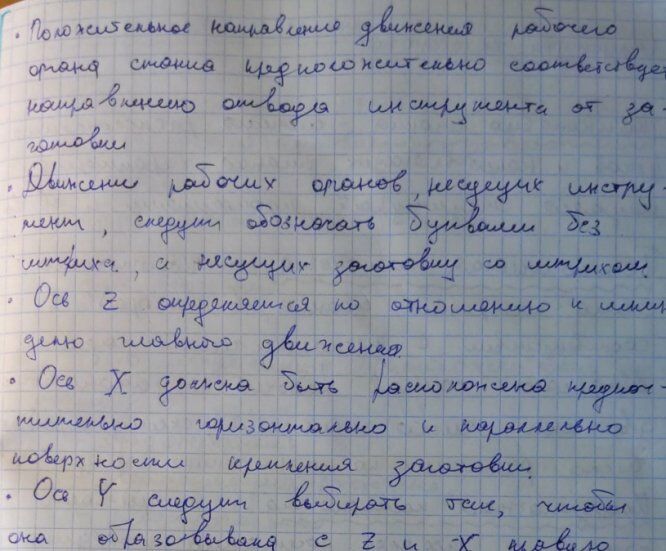 • Положительное направление движения рабочего
органа станка предположительно соответствует
направлению отвода инструмента от за-
готовки
• Движение рабочих органов, несущих инстру
мент, следует обозначать буквами без
штриха, а несущих заготовку со штрихом.
• Ось Z определяется по отношению к шпин
делю главного движения.
• Ось X должна быть расположена предпоч-
тительно горизонтально и параллельно
поверхности крепления заготовки.
• Ось Y следует выбирать так, чтобы
она образовывала с Z и X правую